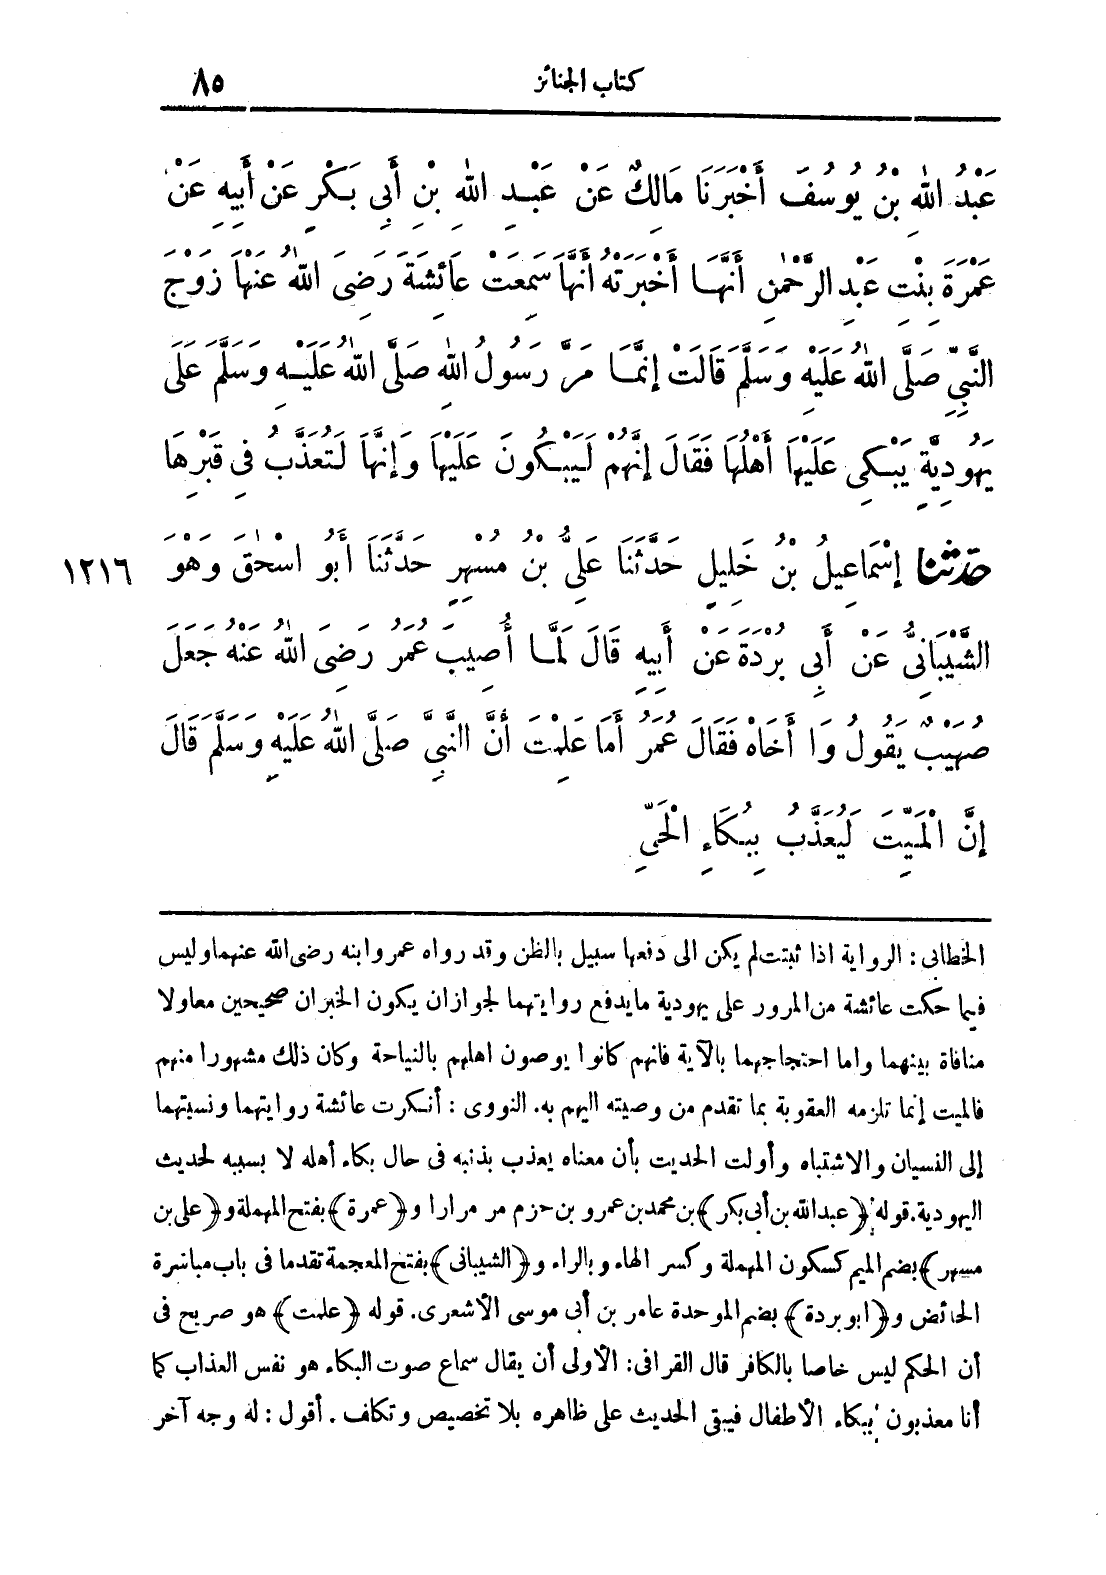 كتاب الجنائز ٨٥
عَبْدُ اللهِ بْنُ يُوسُفَ أَخْبَرَنَا مَالِكٌ عَنْ عَبْدِ اللهِ بْنِ أَبِي بَكْرٍ عَنْ أَبِيهِ عَنْ
عَمْرَةَ بِنْتِ عَبْدِ الرَّحْمٰنِ أَنَّهَا أَخْبَرَتْهُ أَنَّهَا سَمِعَتْ عَائِشَةَ رَضِىَ اللهُ عَنْهَا زَوْجَ
النَّبِيِّ صَلَّى اللهُ عَلَيْهِ وَسَلَّمَ قَالَتْ إِنَّمَا مَرَّ رَسُولُ اللهِ صَلَّى اللهُ عَلَيْهِ وَسَلَّمَ عَلَى
يَهُودِيَّةٍ يَبْكِى عَلَيْهَا أَهْلُهَا فَقَالَ إِنَّهُمْ لَيَبْكُونَ عَلَيْهَا وَإِنَّهَا لَتُعَذَّبُ فِي قَبْرِهَا
حَدَّثَنَا إِسْمَاعِيلُ بْنُ خَلِيلٍ حَدَّثَنَا عَلِيُّ بْنُ مُسْهِرٍ حَدَّثَنَا أَبُو اسْحٰقَ وَهْوَ ١٢١٦
الشَّيْبَانِىُّ عَنْ أَبِى بُرْدَةَ عَنْ أَبِيهِ قَالَ لَمَّا أُصِيبَ عُمَرُ رَضِىَ اللهُ عَنْهُ جَعَلَ
صُهَيْبٌ يَقُولُ وَا أَخَاهْ فَقَالَ عُمَرُ أَمَا عَلِمْتَ أَنَّ النَّبِىَّ صَلَّى اللهُ عَلَيْهِ وَسَلَّمَ قَالَ
إِنَّ الْمَيِّتَ لَيُعَذَّبُ بِبُكَاءِ الْحَىِّ
الخطابى : الرواية اذا ثبتت لم يكن الى دفعها سبيل بالظن وقد رواه عمر وابنه رضى الله عنهما وليس
فيما حكت عائشة من المرور على يهودية ما يدفع روايتهما لجواز ان يكون الخبران صحيحين معا ولا
منافاة بينهما واما احتجاجهما بالآية فانهم كانوا يوصون اهلهم بالنياحة وكان ذلك مشهورا منهم
فالميت إنما تلزمه العقوبة بما تقدم من وصيته اليهم به. النووى : أنكرت عائشة روايتهما ونسبتهما
إلى النسيان والاشتباه وأولت الحديث بأن معناه يعذب بذنبه فى حال بكاء أهله لا بسببه لحديث
اليهودية. قوله ﴿عبد الله بن أبى بكر﴾ بن محمد بن عمرو بن حزم مر مرارا و﴿عمرة﴾ بفتح المهملة و﴿على بن
مسهر﴾ بضم الميم كسكون المهملة وكسر الهاء وبالراء و﴿الشيبانى﴾ بفتح المعجمة تقدما فى باب مباشرة
الحائض و﴿ابو بردة﴾ بضم الموحدة عامر بن أبى موسى الأشعرى. قوله ﴿علمت﴾ هو صريح فى
أن الحكم ليس خاصا بالكافر قال القرافى: الأولى أن يقال سماع صوت البكاء هو نفس العذاب كما
أنا معذبون ببكاء الأطفال فيبقى الحديث على ظاهره بلا تخصيص وتكلف . أقول : له وجه آخر